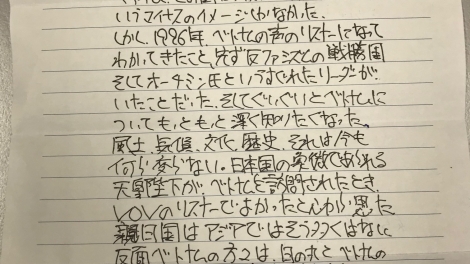 いうマイナスのイメージしかなかった。
しかし、1996年、ベトナムの声のリスナーになって
わかってきたこと、先ず反ファシズムの戦勝国
そしてホーチミン氏というすぐれたリーダが
いたことだった。そしてぐいぐいとベトナムに
ついてもっともっと深く知りたくなった。
風土、気候、文化、歴史、それは今も
何ら変らない。日本国の象徴であられる
天皇陛下がベトナムを訪問されたとき、
VOVのリスナーでよかったと心から思った
親日国はアジアではそう多くはない
反面ベトナムの方々は、日の丸とベトナムの